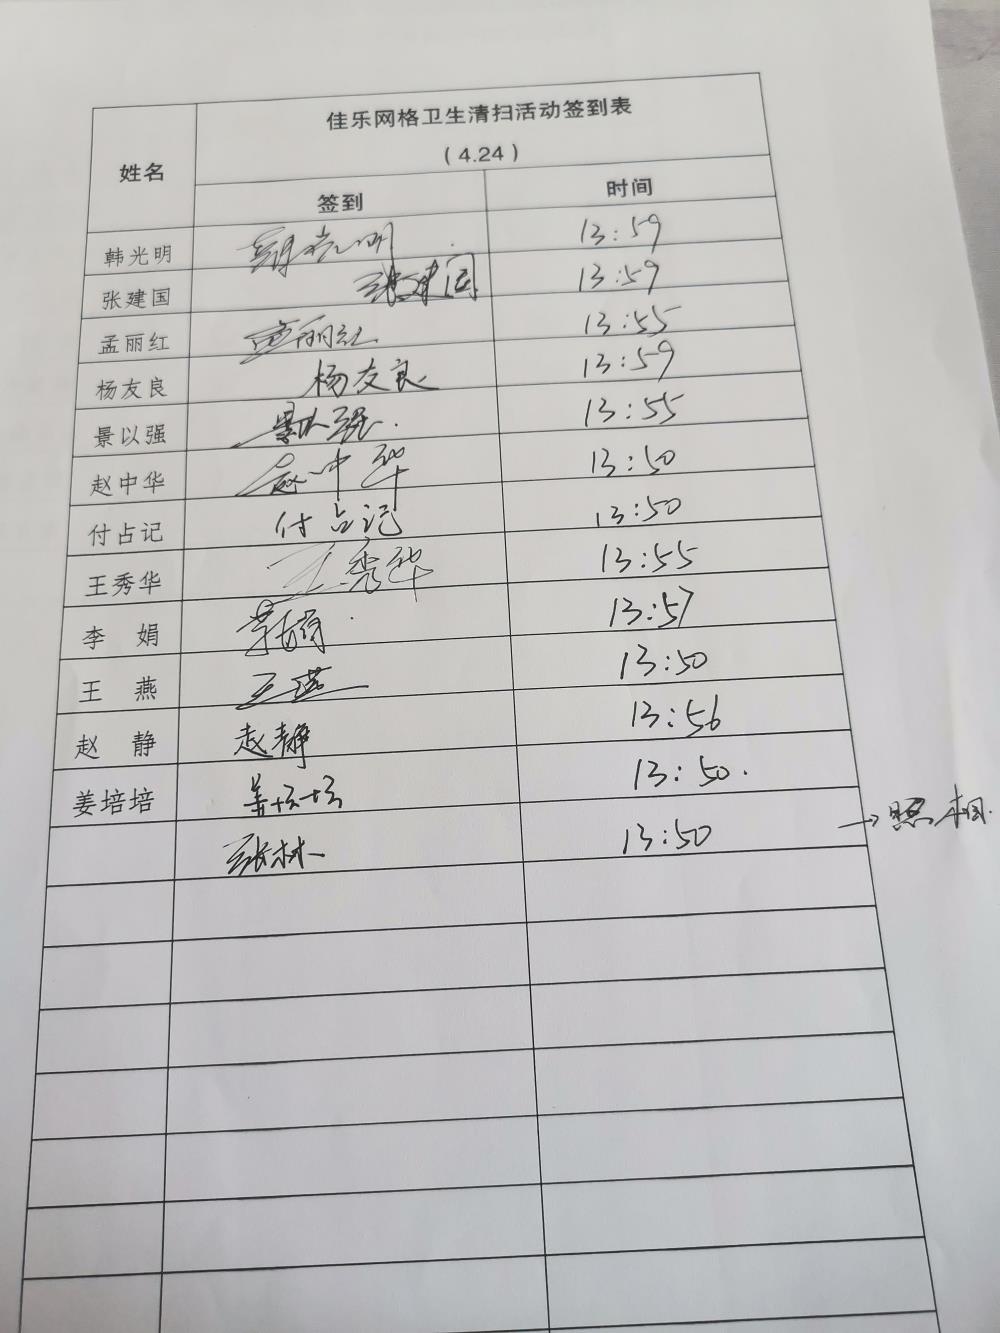 佳乐网格卫生清扫活动签到表
姓名
（4.24）
签到 时间
韩光明 韩光明 13:59
张建国 张建国 13:59
孟丽红 孟丽红 13:55
杨友良 杨友良 13:59
景以强 景以强 13:55
赵中华 赵中华 13:50
付占记 付占记 13:50
王秀华 王秀华 13:55
李 娟 李娟 13:57
王 燕 王燕 13:50
赵 静 赵静 13:56
姜培培 姜培培 13:50.
张林 13:50 →照相.